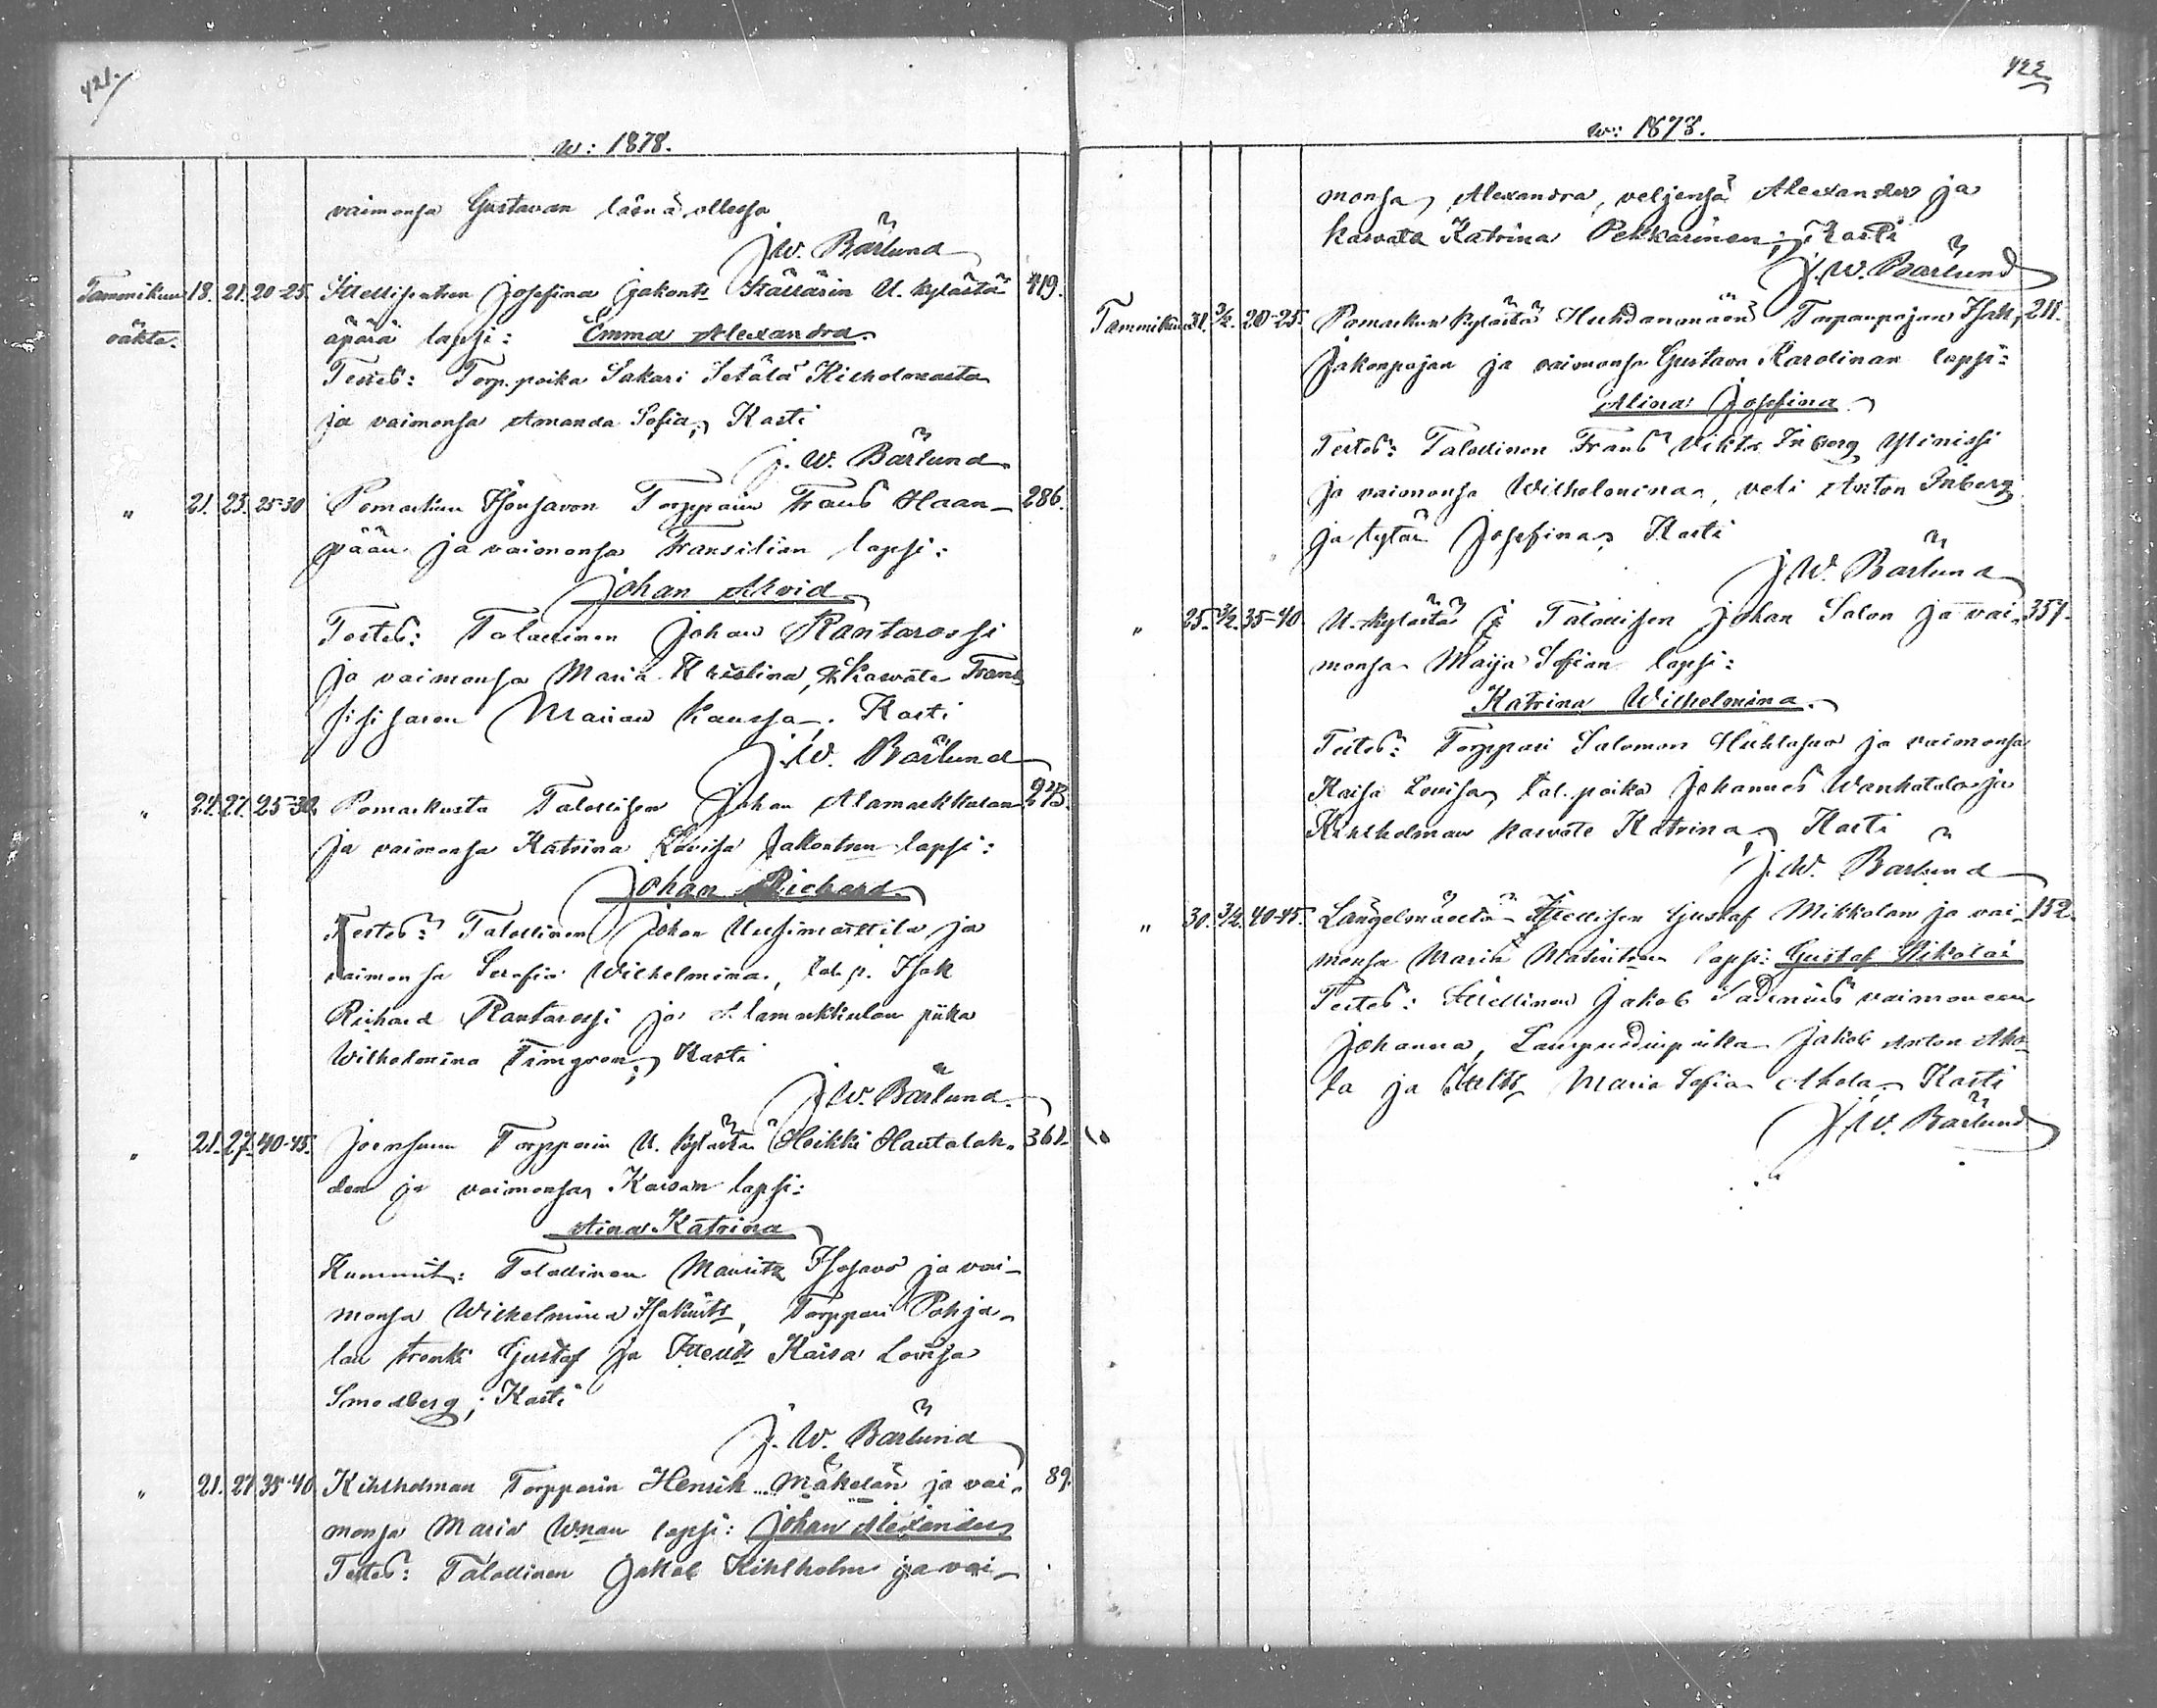 421.
w: 1878.
vaimonsa Gustavan läsnä ollessa
J. W. Bärlund
Tammikuu 18. 21. 20-25. Itsellisentren Josefina Jakonts U. kylästä 419.
äpärä lapsi: Emma Alexandra
Testes: Torp. poika Sakari Setälä Kihlholmasta
ja vaimonsa Amanda Sofia, Kasti
J. W. Bärlund
" 21. 23. 25-30 Pomarkun Isonsavon Torpparin Frans Haan-
286.
pään ja vaimonsa Fransilian lapsi:
Johan Arvid
Testes: Talollinen Johan Rantarossi
ja vaimonsa Maria Kristina, Kasvate Frans
Marian kanssa, Kasti
J. W. Bärlund
" 24. 27. 25-30. Pomarkusta Talollisen Johan Alamarkkulan 273.
ja vaimonsa Katrina Lovisa Jakontren lapsi:
Johan Richard
Testes: Talollinen Johan Uusimarttila ja
vaimonsa Serafia Wilhelmina, tal. p. Isak
Richard Rantarossi ja Alamarkkulan piika
Wilhelmina Timgren, Kasti
J. W. Bärlund
" 21. 27. 40-45. Joensuun Torpparin U. kylästä Heikki Hautalah- 361.
den ja vaimonsa Kaisan lapsi:
Aina Katrina
Kummit: Talollinen Mauritz Isosavo ja vai-
monsa Wilhelmina Isakints, Torppari Pohja-
lan trenki Gustaf ja Itsellis Kaisa Lovisa
Smedberg; Kasti
J. W. Bärlund
" 21. 27. 35-40 Kihlholman Torpparin Henrik Mäkelän ja vai- 89.
monsa Maria lapsi: Johan Alexander
Testes: Talollinen Jakob Kihlholm ja vai-
422
w: 1878.
monsa Alexandra, veljensä Alexander ja
kasvata Katrina Pekkarinen; Kasti
J. W. Bärlund
Tammikuu 31. 3/2. 20-25. Pomarkun kylästä Huhdanmäen Torpanpojan Isak 211.
Jakonpojan ja vaimonsa Gustava Karolinan lapsi:
Alina Josefina
Testes: Talollinen Frans Viktor Inberg Ylinissi
ja vaimonsa Wilhelmina, veli Anton Inberg
ja tytär Josefina; Kasti
J. W. Bärlund
" 25. 3/2. 35-40 U. kylästä Talollisen Johan Salon ja vai- 357.
monsa Maija Sofian lapsi:
Katrina Wilhelmina
Testes: Torppari Salomon ja vaimonsa
Kaisa Lovisa, tal. poika Johannes Wanhatalo ja
Kihlholman kasvate Katrina, Kasti
J. W. Bärlund
" 30. 3/2. 40-45. Längelmäeltä Itsellisen Gustaf Mikkolan ja vai- 152.
monsa Maria lapsi: Gustaf Nikolai
Testes: Itsellinen Jakob vaimoneen
Johanna, Jakob Anton Aho-
la ja Itsellis Maria Sofia Ahola, Kasti
J. W. Bärlund